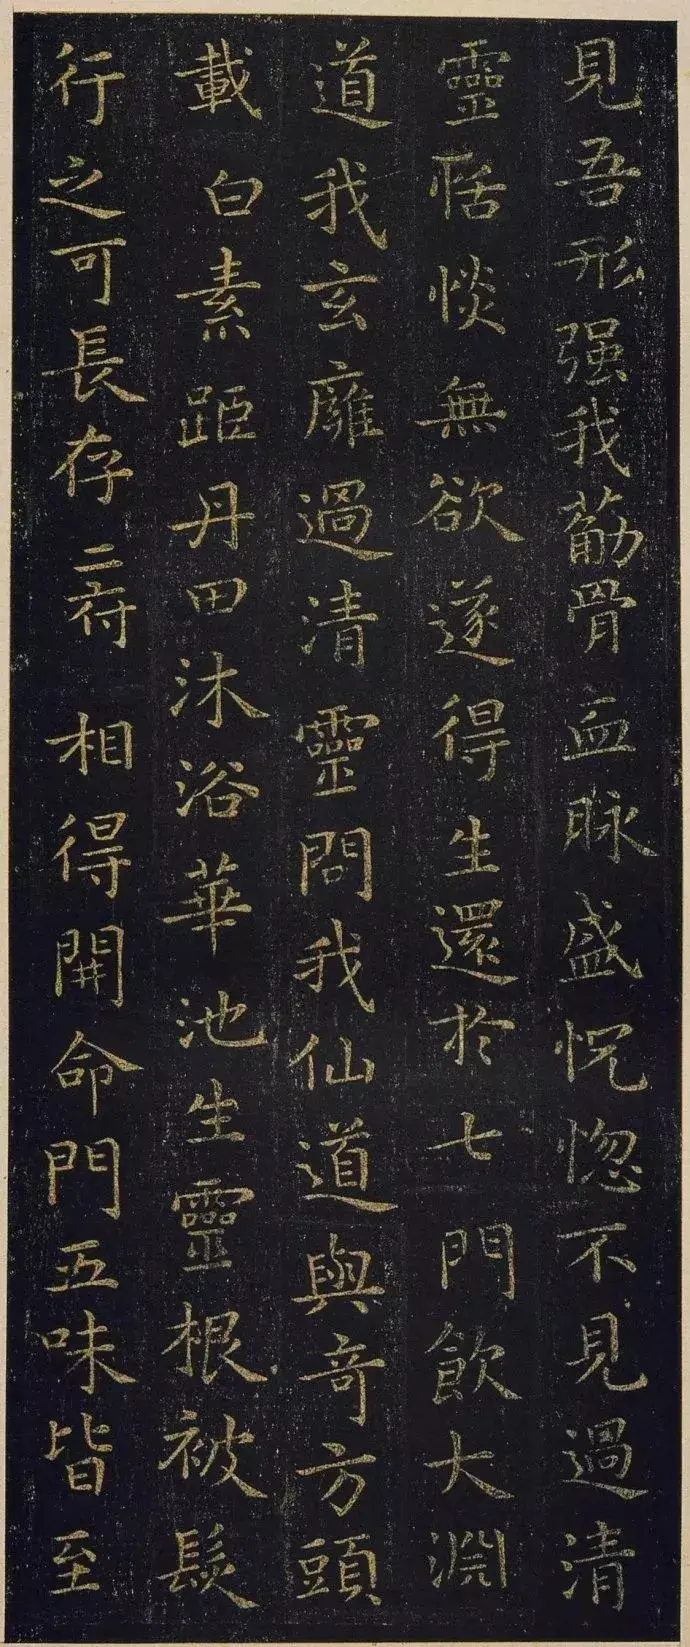 見吾形强我葫骨血脉盛恍惚不見過清
靈恬惔無欲遂得生還於七門飲大淵
道我玄廱過清靈問我仙道與奇方頭
載白素距丹田沐浴華池生靈根被髮
行之可長存二府相得開命門五味皆至